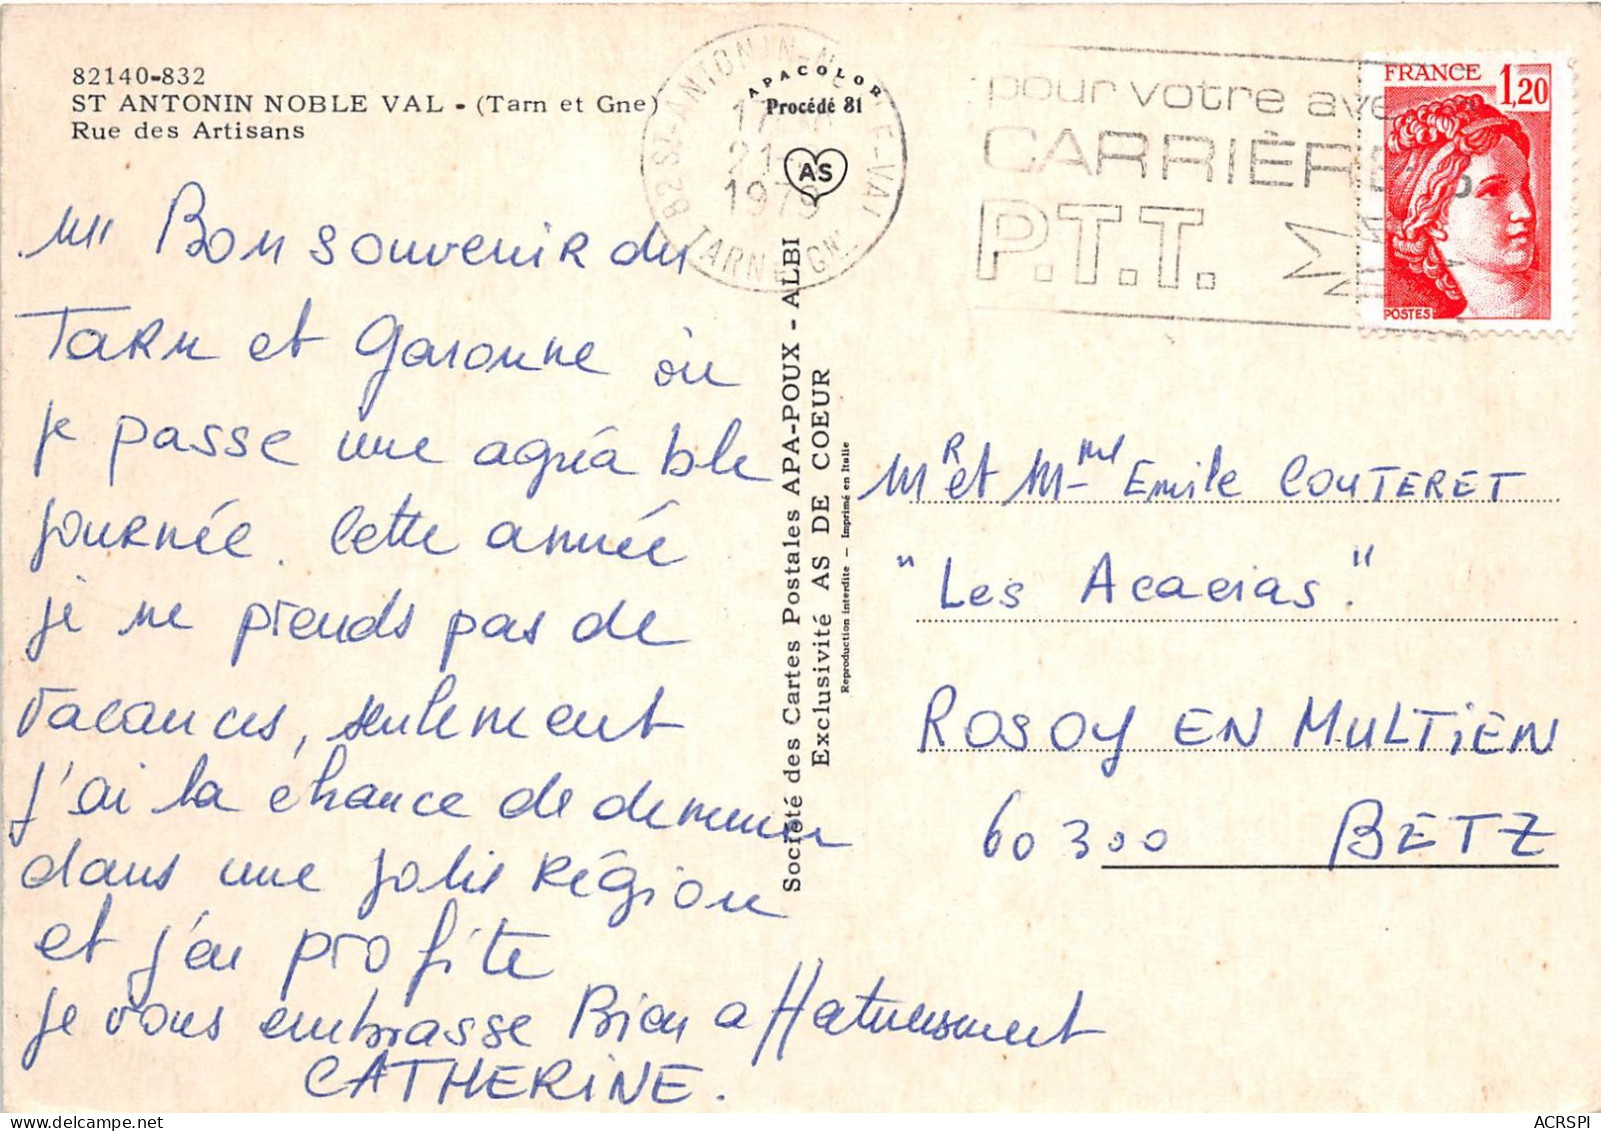 82140-832
ST ANTONIN NOBLE VAL - (Tarn et Gne)
Rue des Artisans
APACOLOR
Procédé 81
AS
82 ST-ANTONIN-NOBLE-VAL
TARN E. GNE
17
21
1979
pour votre ave
CARRIÈRES
P.T.T.
FRANCE 1,20
POSTES
Bon souvenir du
TARN et Garonne où
je passe une agréable
journée. Cette année
je ne prends pas de
vacances, seulement
j'ai la chance de demeurer
dans une jolie région
et j'en profite
je vous embrasse Bien affectueusement
CATHERINE.
Société des Cartes Postales APA-POUX - ALBI
Exclusivité AS DE COEUR
Reproduction interdite — Imprimé en Italie
MR et Mme Emile COUTERET
"Les Acacias."
ROSOY EN MULTIEN
60300 BETZ
ACRSPI